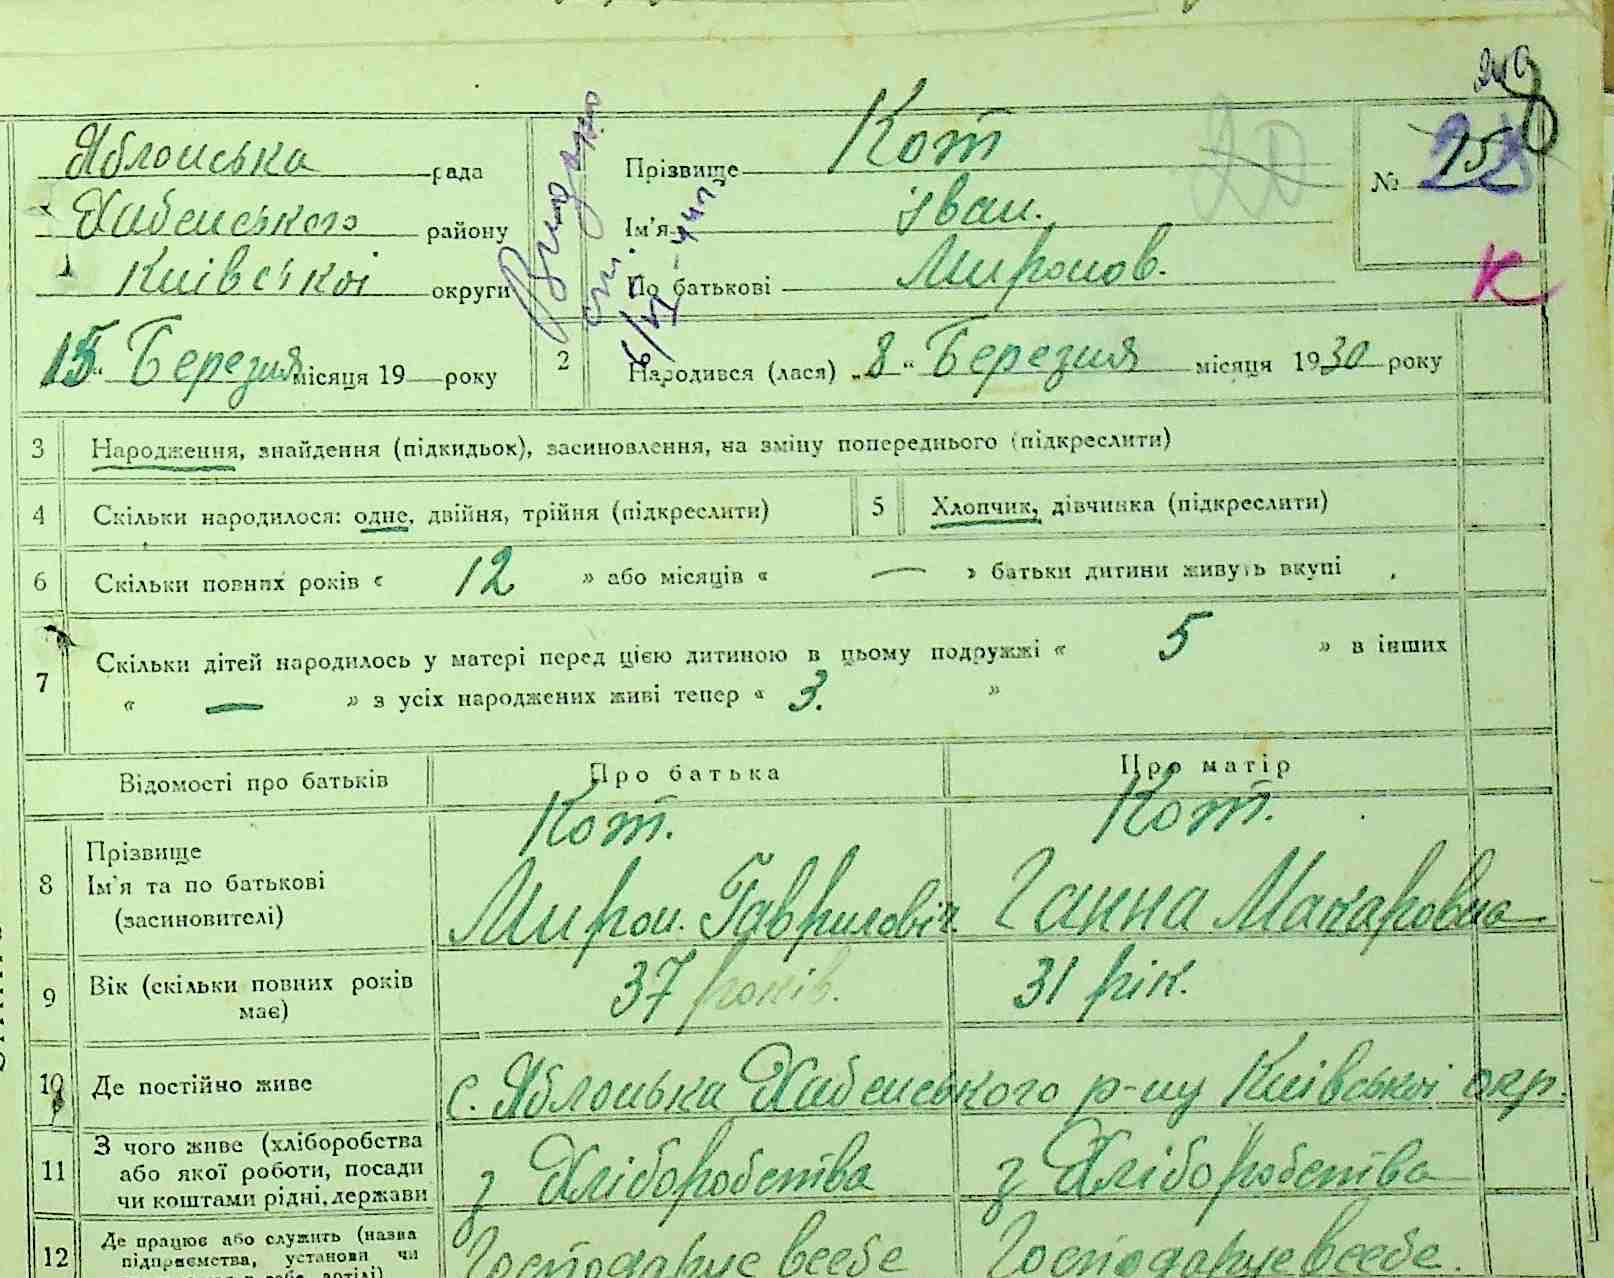 Яблонська рада
Хабенського району
Київської округи
„15“ Березня місяця 19 року
Прізвище Кот
Ім'я Іван.
По батькові Миронов.
20
№ 15
К
2 Народився (лася) „8“ Березня місяця 1930 року
3 Народження, знайдення (підкидьок), засиновлення, на зміну попереднього (підкреслити)
4 Скільки народилося: одне, двійня, трійня (підкреслити) 5 Хлопчик, дівчинка (підкреслити)
6 Скільки повних років « 12 » або місяців « — » батьки дитини живуть вкупі
7 Скільки дітей народилось у матері перед цією дитиною в цьому подружжі « 5 » в інших
« — » з усіх народжених живі тепер « 3. »
Відомості про батьків Про батька Про матір
8 Прізвище Кот. Кот.
Ім'я та по батькові Мирон. Гаврилович Ганна Макаровна
(засиновителі)
9 Вік (скільки повних років має) 37 років. 31 рік.
10 Де постійно живе с. Яблонька Хабенського р-ну Київської окр.
11 З чого живе (хліборобства
або якої роботи, посади з Хліборобства з Хліборобства
чи коштами рідні, держави
12 Де працює або служить (назва
підприємства, установи чи Господарує в себе Господарує в себе.